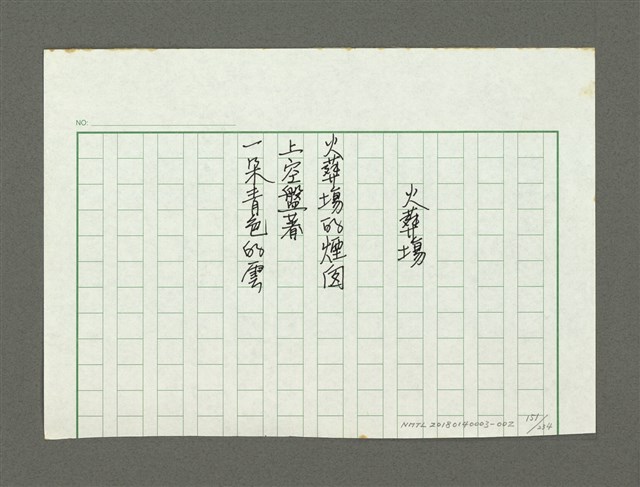 NO:
火葬場
火葬場的煙囪
上空盤着
一朵青色的雲
NMTL 20180140003-002
151/234